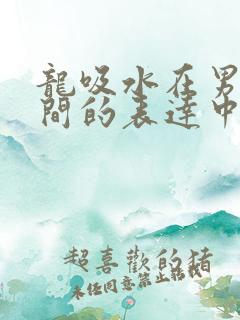 龍吸水在男
間的表達中
超喜歡的豬
未任同意禁止轉載